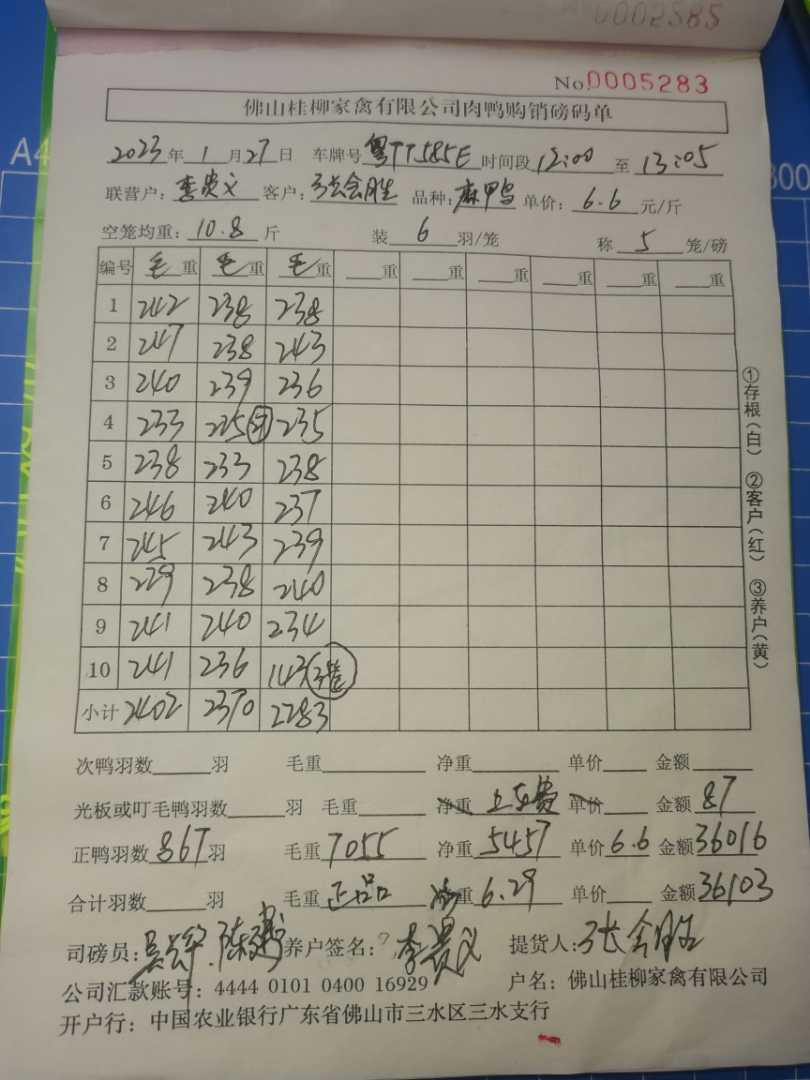 0002585
No.0005283
佛山桂柳家禽有限公司肉鸭购销磅码单
2023年1月27日 车牌号粤TT585E时间段12:00至13:05
联营户:李贵义 客户:张会胜 品种:麻甲鸟 单价:6.6元/斤
空笼均重:10.8斤 装6羽/笼 称5笼/磅
编号 毛重 毛重 毛重 重 重 重 重 重 重
1 242 238 238
2 247 238 243
3 240 239 236
4 233 225 235
5 238 233 238
6 246 240 237
7 245 243 239
8 229 238 240
9 241 240 234
10 241 236 143 3笼
小计 2402 2370 2283
①存根(白) ②客户(红) ③养户(黄)
次鸭羽数 羽 毛重 净重 单价 金额
光板或叮毛鸭羽数 羽 毛重 净重 上车费 单价 金额 87
正鸭羽数 867羽 毛重7055 净重5457 单价6.6 金额36016
合计羽数 羽 毛重 正品 重6.29 单价 金额36103
司磅员: 养户签名:李贵义 提货人:张会胜
公司汇款账号:4444 0101 0400 16929 户名:佛山桂柳家禽有限公司
开户行:中国农业银行广东省佛山市三水区三水支行